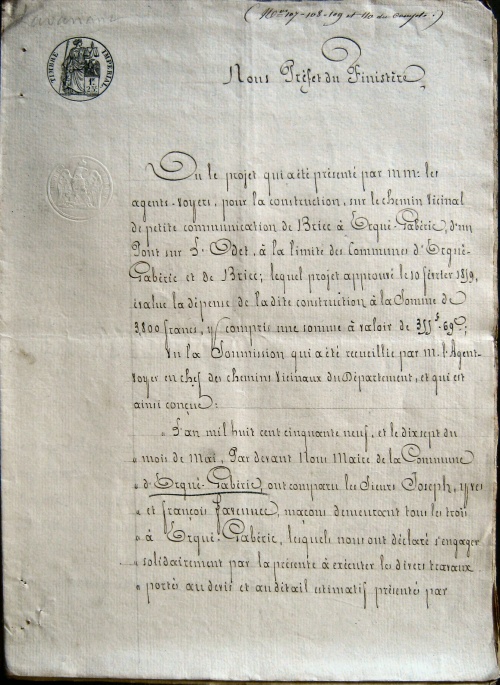 (Nos 107 - 108 - 109 et 110 du Compte.)
TIMBRE IMPÉRIAL
1f
25c
Nous Préfet du Finistère,
Vu le projet qui a été présenté par mm: les
agents-voyers, pour la construction, sur le chemin Vicinal
de petite communication de Briec à Ergué-Gabéric, d'un
Pont sur l'Odet, à la limite des Communes d'Ergué-
Gabéric et de Briec; lequel projet approuvé le 10 février 1859,
évalue la dépense de la dite construction à la Somme de
3,800 francs, y compris une somme à valoir de 355f-69c;
Vu la Soumission qui a été recueillie par m. l'Agent-
voyer en chef des chemins Vicinaux du Département, et qui est
ainsi conçue:
" L'an mil huit cent cinquante neuf, et le dixsept du
" mois de Mai, Par devant Nous Maire de la Commune
" d'Ergué-Gabéric, ont comparu les Sieurs Joseph, yves
" et françois Favennec, maçons demeurant tous les trois
" à Ergué-Gabéric, lesquels nous ont déclaré s'engager
" solidairement par la présente à exécuter les divers travaux
" portés au devis et au détail estimatif présentés par